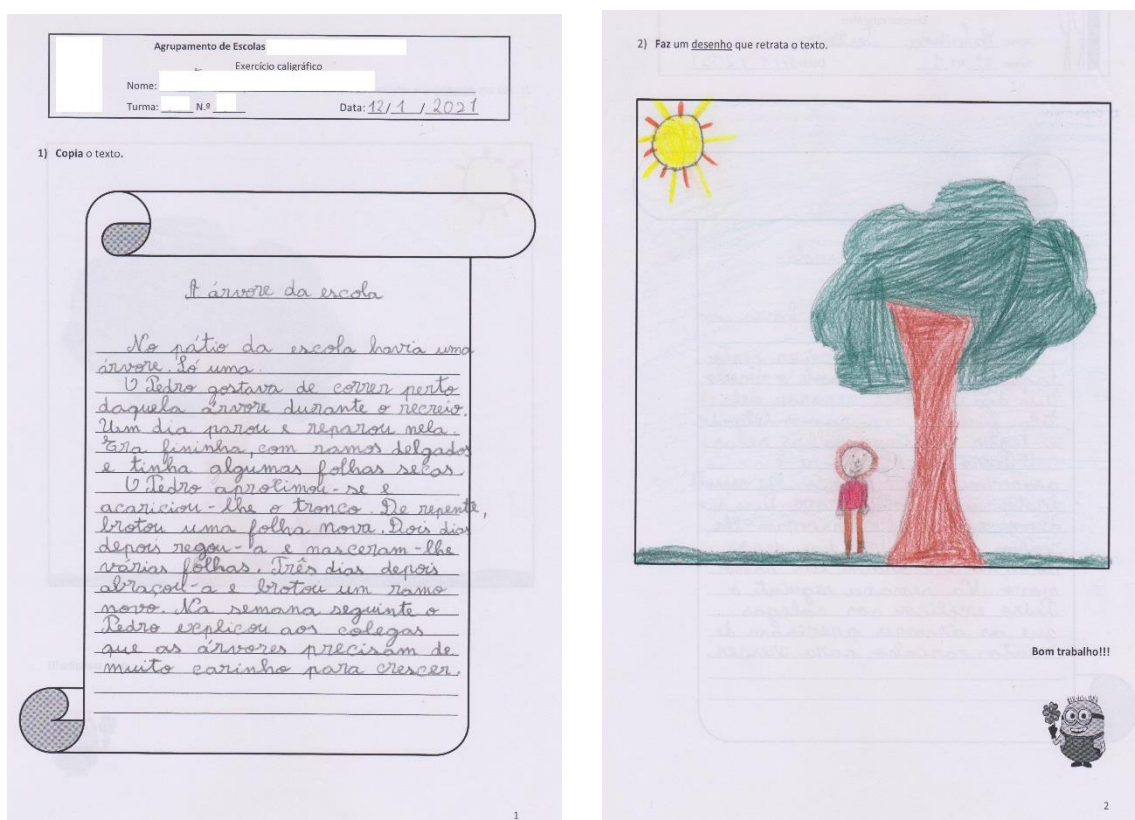 Agrupamento de Escolas
Exercício caligráfico
Nome:
Turma: N.º Data: 12/1/2021
1) Copia o texto.
A árvore da escola
No pátio da escola havia uma
árvore. Só uma.
O Pedro gostava de correr perto
daquela árvore durante o recreio.
Um dia parou e reparou nela.
Era fininha, com ramos delgados
e tinha algumas folhas secas.
O Pedro aprotimou-se e
acariciou-lhe o tronco. De repente,
brotou uma folha nova. Dois dias
depois regou-a e nasceram-lhe
várias folhas. Três dias depois
abraçou-a e brotou um ramo
novo. Na semana seguinte o
Pedro explicou aos colegas
que as árvores precisam de
muito carinho para crescer.
1
2) Faz um desenho que retrata o texto.
Bom trabalho!!!
2